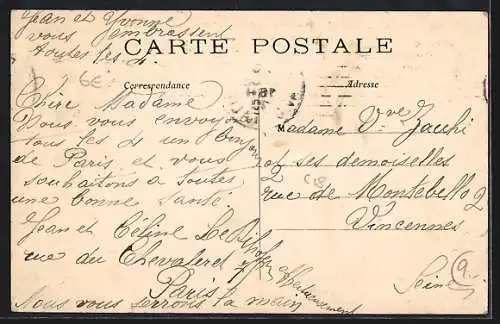 Jean et Yvonne
vous embrassent
toutes les 4.
CARTE POSTALE
6E
Correspondance
Adresse
Chère Madame
Nous vous envoyons
tous les 4 un bonjour
de Paris et vous
souhaitons à toutes
une bonne santé.
Jean et Céline
rue du Chevaleret
Paris
Nous vous serrons la main
affectueusement
M
Madame Vve Zacchi
et ses demoiselles
rue de Montebello 2
Vincennes
Seine
9.